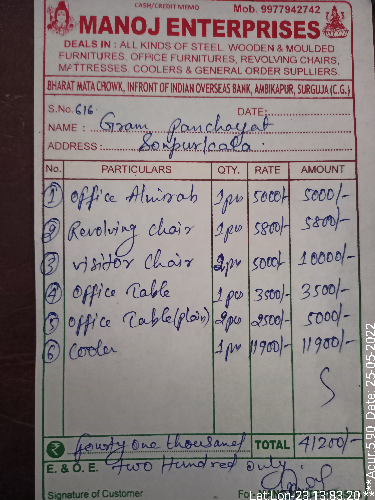 CASH/CREDIT MEMO Mob. 9977942742
MANOJ ENTERPRISES
DEALS IN : ALL KINDS OF STEEL WOODEN & MOULDED
FURNITURES, OFFICE FURNITURES, REVOLVING CHAIRS,
MATTRESSES, COOLERS & GENERAL ORDER SUPLLIERS.
BHARAT MATA CHOWK, INFRONT OF INDIAN OVERSEAS BANK, AMBIKAPUR, SURGUJA (C.G.)
S.No. 616 DATE:
NAME : Gram Panchayat
ADDRESS : Sonpurkala
No. PARTICULARS QTY. RATE AMOUNT
1 Office Almirah 1pc 5000/- 5000/-
2 Revolving Chair 1pc 5800/- 5800/-
3 Visitor Chair 2pc 5000/- 10000/-
4 Office Table 1pc 3500/- 3500/-
5 Office Table (plain) 2pc 2500/- 5000/-
6 Cooler 1pc 11900/- 11900/-
₹ fourty one thousand TOTAL 41200/-
E. & O. E. two Hundred only
Signature of Customer For
Lat Lon-23,13,83.20
***Acur:5.90 Date: 25-05-2022